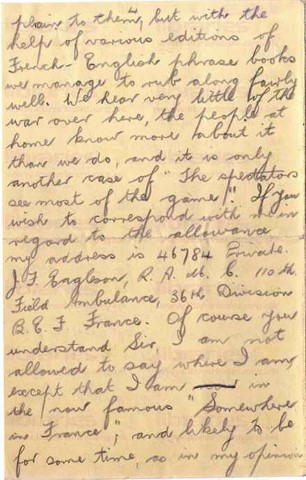 plain to them, but with the
help of various editions of
French - English phrase books
we manage to rub along fairly
well. We hear very little of the
war over here, the people at
home know more about it
than we do, and it is only
another case of "The spectators
see most of the game!" If you
wish to correspond with me in
regard to the allowance
my address is 46784 Private.
J. F. Eagleson, R. A. M. C. 110th
Field Ambulance, 36th Division
B. E. F France. Of course you
understand Sir, I am not
allowed to say where I am,
except that I am in
the now famous "Somewhere
in France", and likely to be
for some time, as in my opinion